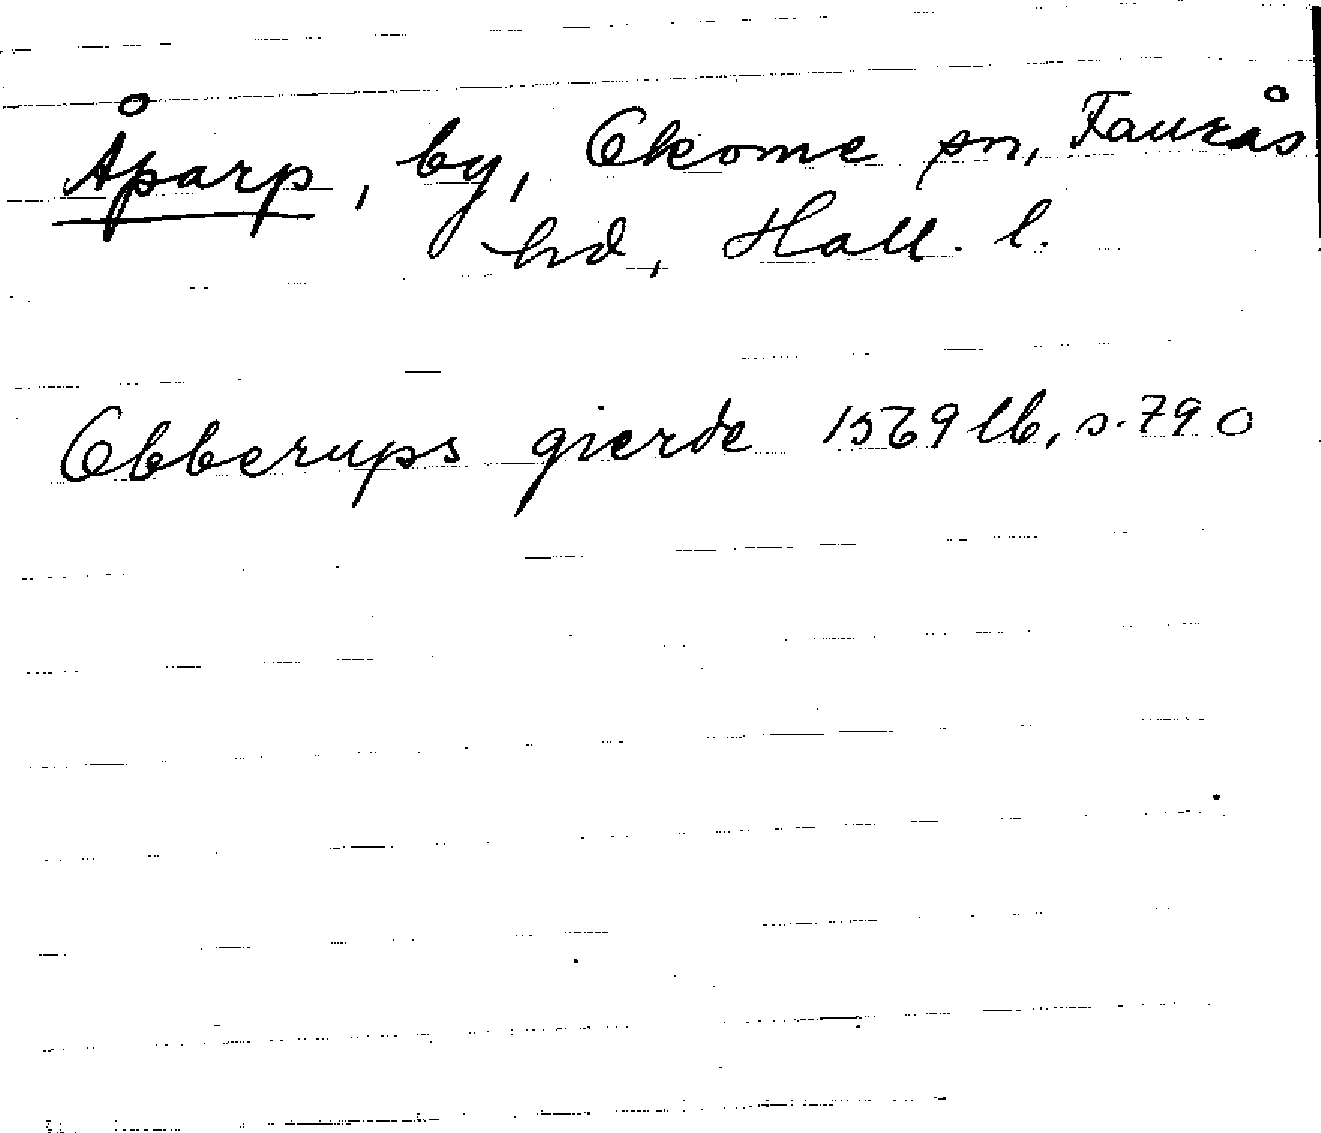 Åparp, by, Okome sn, Faurås
hd, Hall. l.
Obberups gierde 1569 lb, s. 790